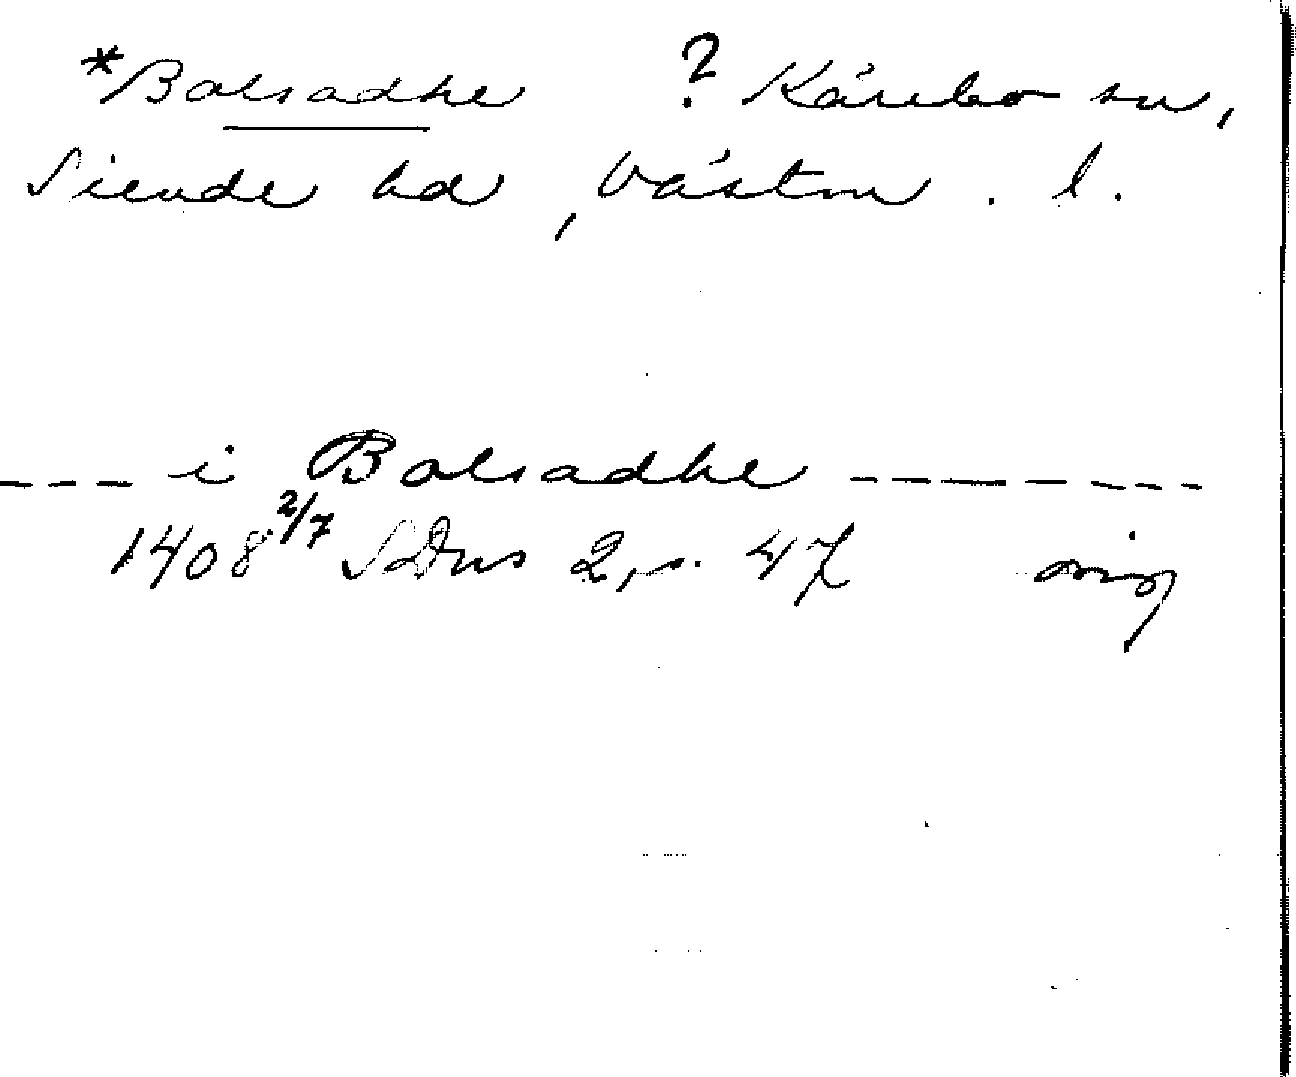 *Bolsadhe ? Kärrbo sn,
Siende hd, Västm. l.
--- i Bolsadhe -------
1408 2/7 SDns 2, s. 47 orig